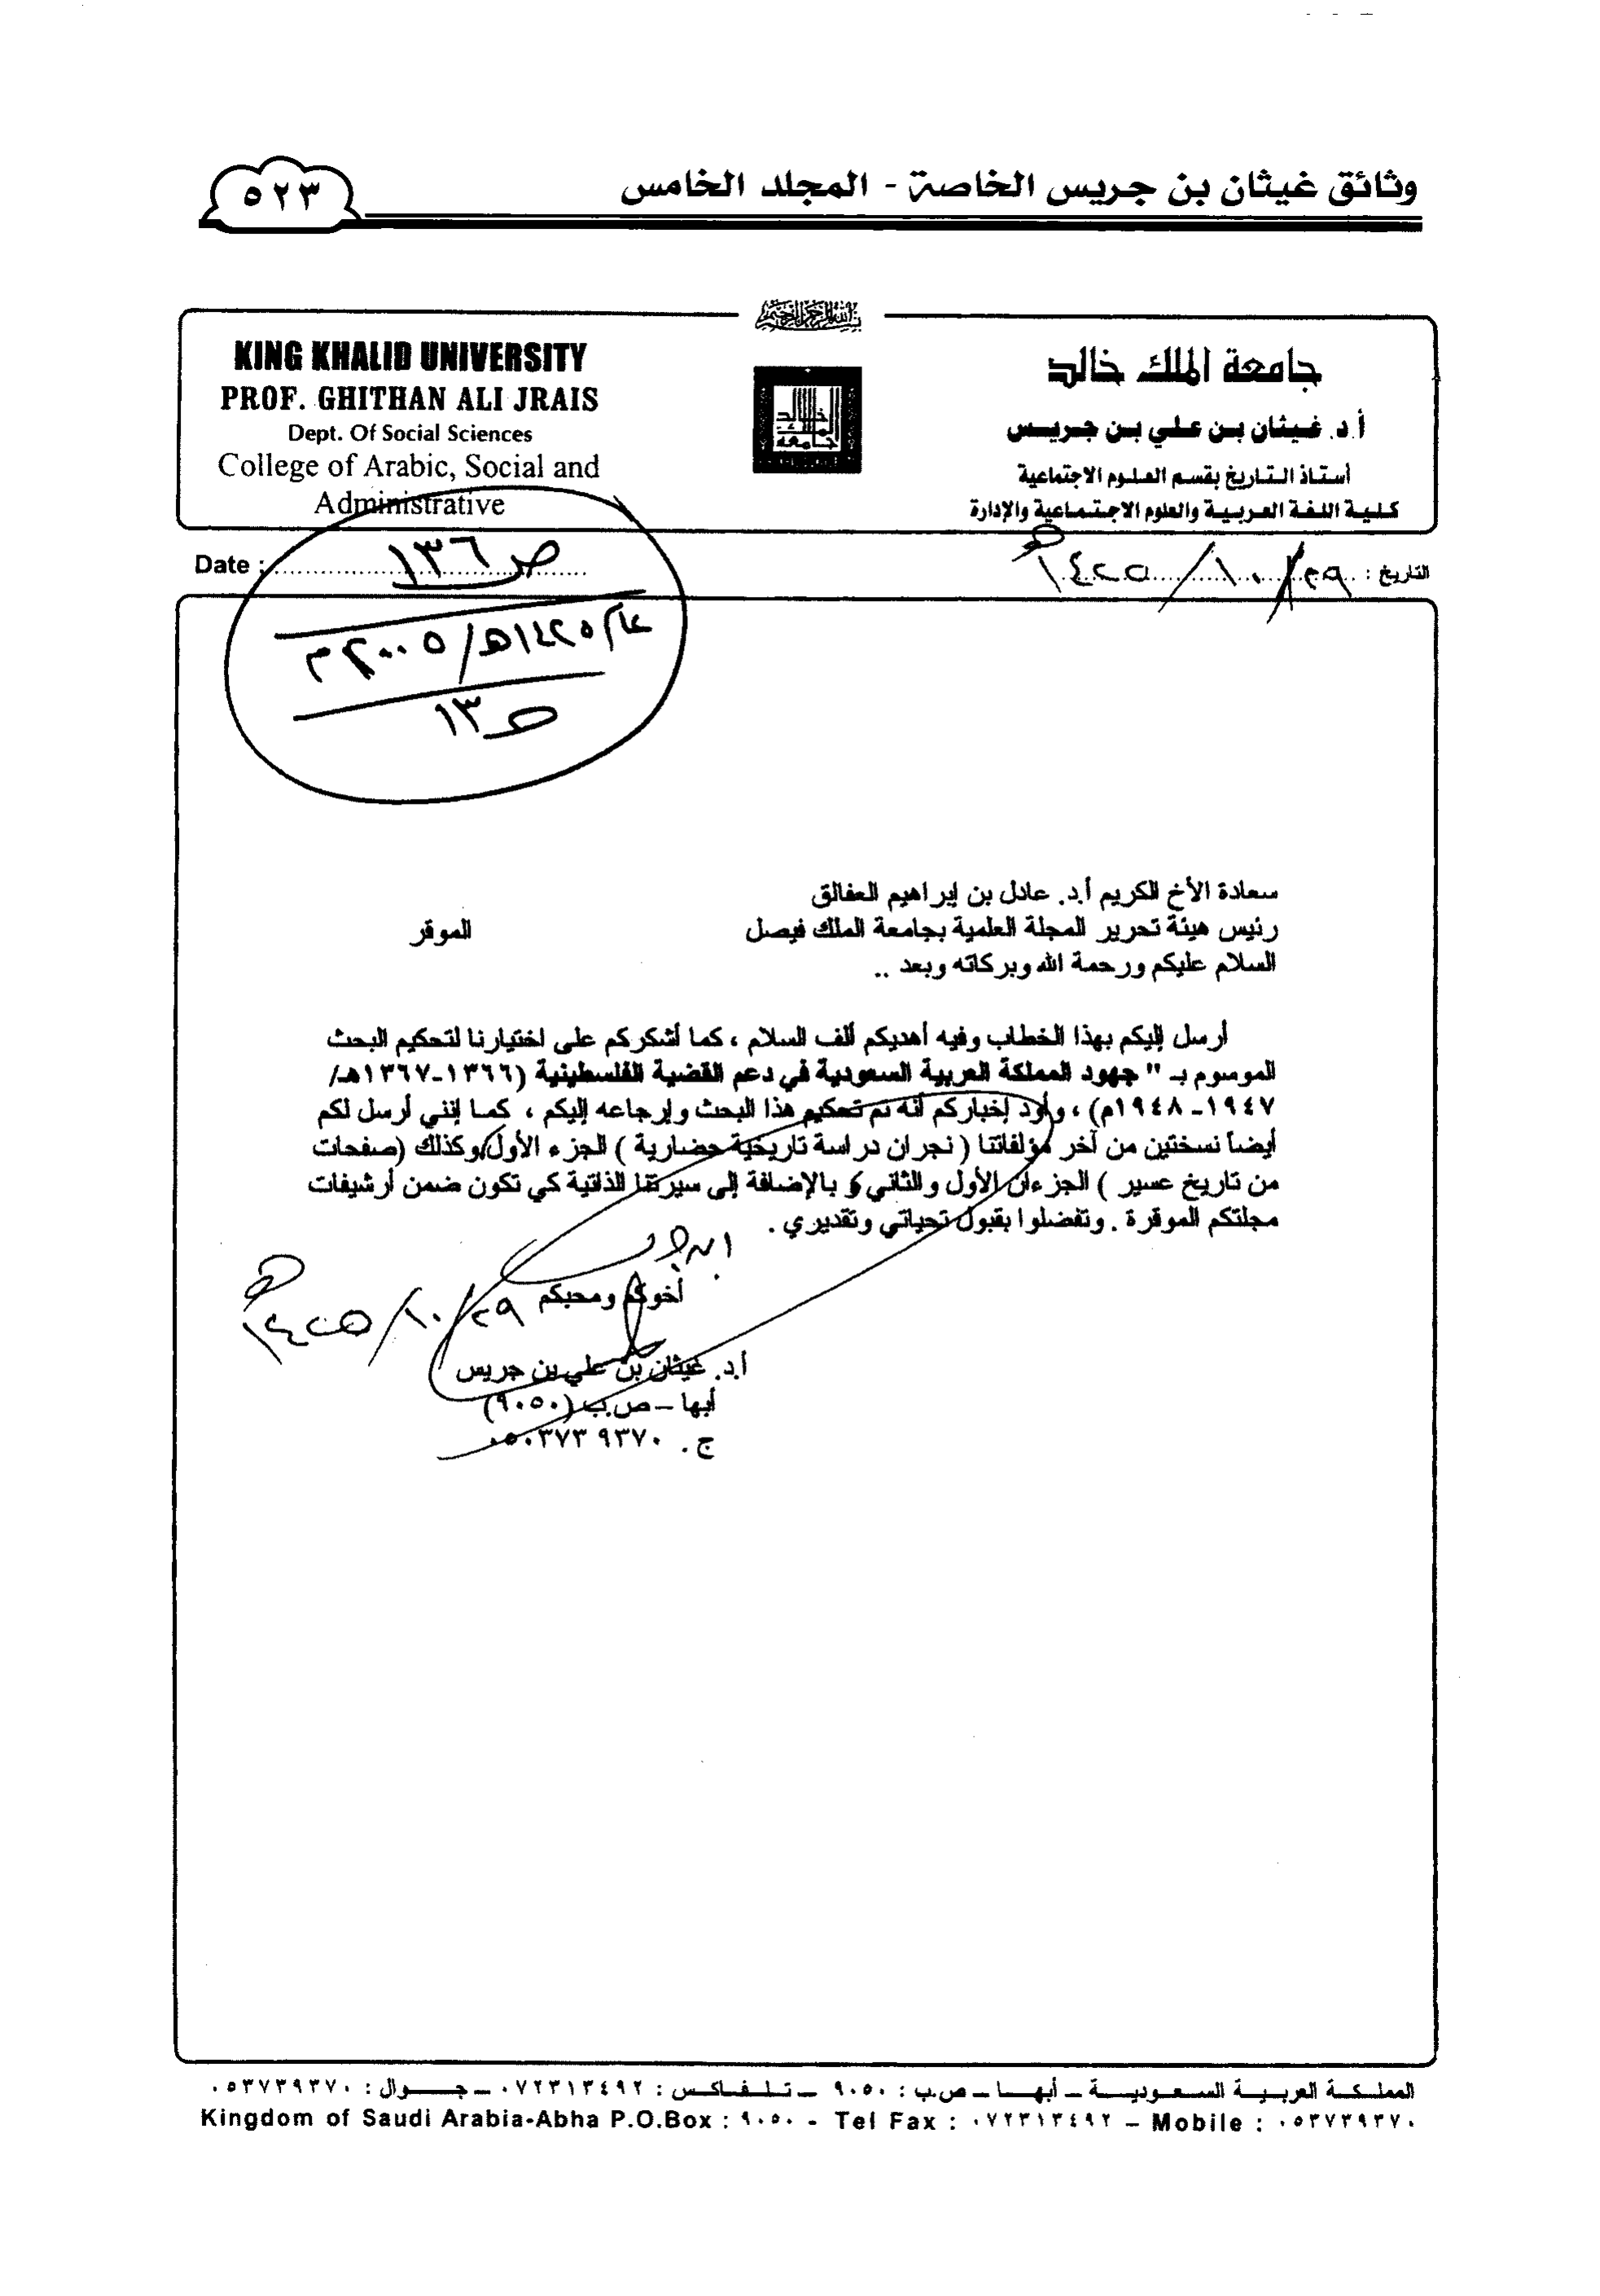 وثائق غيثان بن جريس الخاصة - المجلد الخامس
٥٢٣
بسم الله الرحمن الرحيم
KING KHALID UNIVERSITY
PROF. GHITHAN ALI JRAIS
Dept. Of Social Sciences
College of Arabic, Social and
Administrative
جامعة الملك خالد
جامعة الملك خالد
أ.د. غيثان بن علي بن جريس
أستاذ التاريخ بقسم العلوم الاجتماعية
كلية اللغة العربية والعلوم الاجتماعية والإدارة
التاريخ : ٢٩/١٠/١٤٢٥هـ
Date :
ص ١٣٦
عام ١٤٢٥هـ/٢٠٠٥م
ص ١٣
سعادة الأخ الكريم أ.د. عادل بن إبراهيم العفالق
رئيس هيئة تحرير المجلة العلمية بجامعة الملك فيصل الموقر
السلام عليكم ورحمة الله وبركاته وبعد ..
أرسل إليكم بهذا الخطاب وفيه أهديكم ألف السلام ، كما أشكركم على اختيارنا لتحكيم البحث
الموسوم بـ " جهود المملكة العربية السعودية في دعم القضية الفلسطينية (١٣٦٦-١٣٦٧هـ/
١٩٤٧-١٩٤٨م) ، وأود إخباركم أنه تم تحكيم هذا البحث وإرجاعه إليكم ، كما إنني أرسل لكم
أيضاً نسختين من آخر مؤلفاتنا ( نجران دراسة تاريخية حضارية ) الجزء الأول وكذلك (صفحات
من تاريخ عسير ) الجزءان الأول والثاني و بالإضافة إلى سيرتنا الذاتية كي تكون ضمن أرشيفات
مجلتكم الموقرة . وتفضلوا بقبول تحياتي وتقديري .
أخوكم ومحبكم
٢٩/١٠/١٤٢٥هـ
أ.د. غيثان بن علي بن جريس
أبها – ص.ب (٩٠٥٠)
ج . ٠٥٠٣٧٣٩٣٧٠
المملكة العربية السعودية – أبها – ص.ب : ٩٠٥٠ – تلفاكس : ٠٧٢٣١٣٤٩٢ – جوال : ٠٥٣٧٣٩٣٧٠
Kingdom of Saudi Arabia-Abha P.O.Box : ٩٠٥٠ - Tel Fax : ٠٧٢٣١٣٤٩٢ – Mobile : ٠٥٣٧٣٩٣٧٠